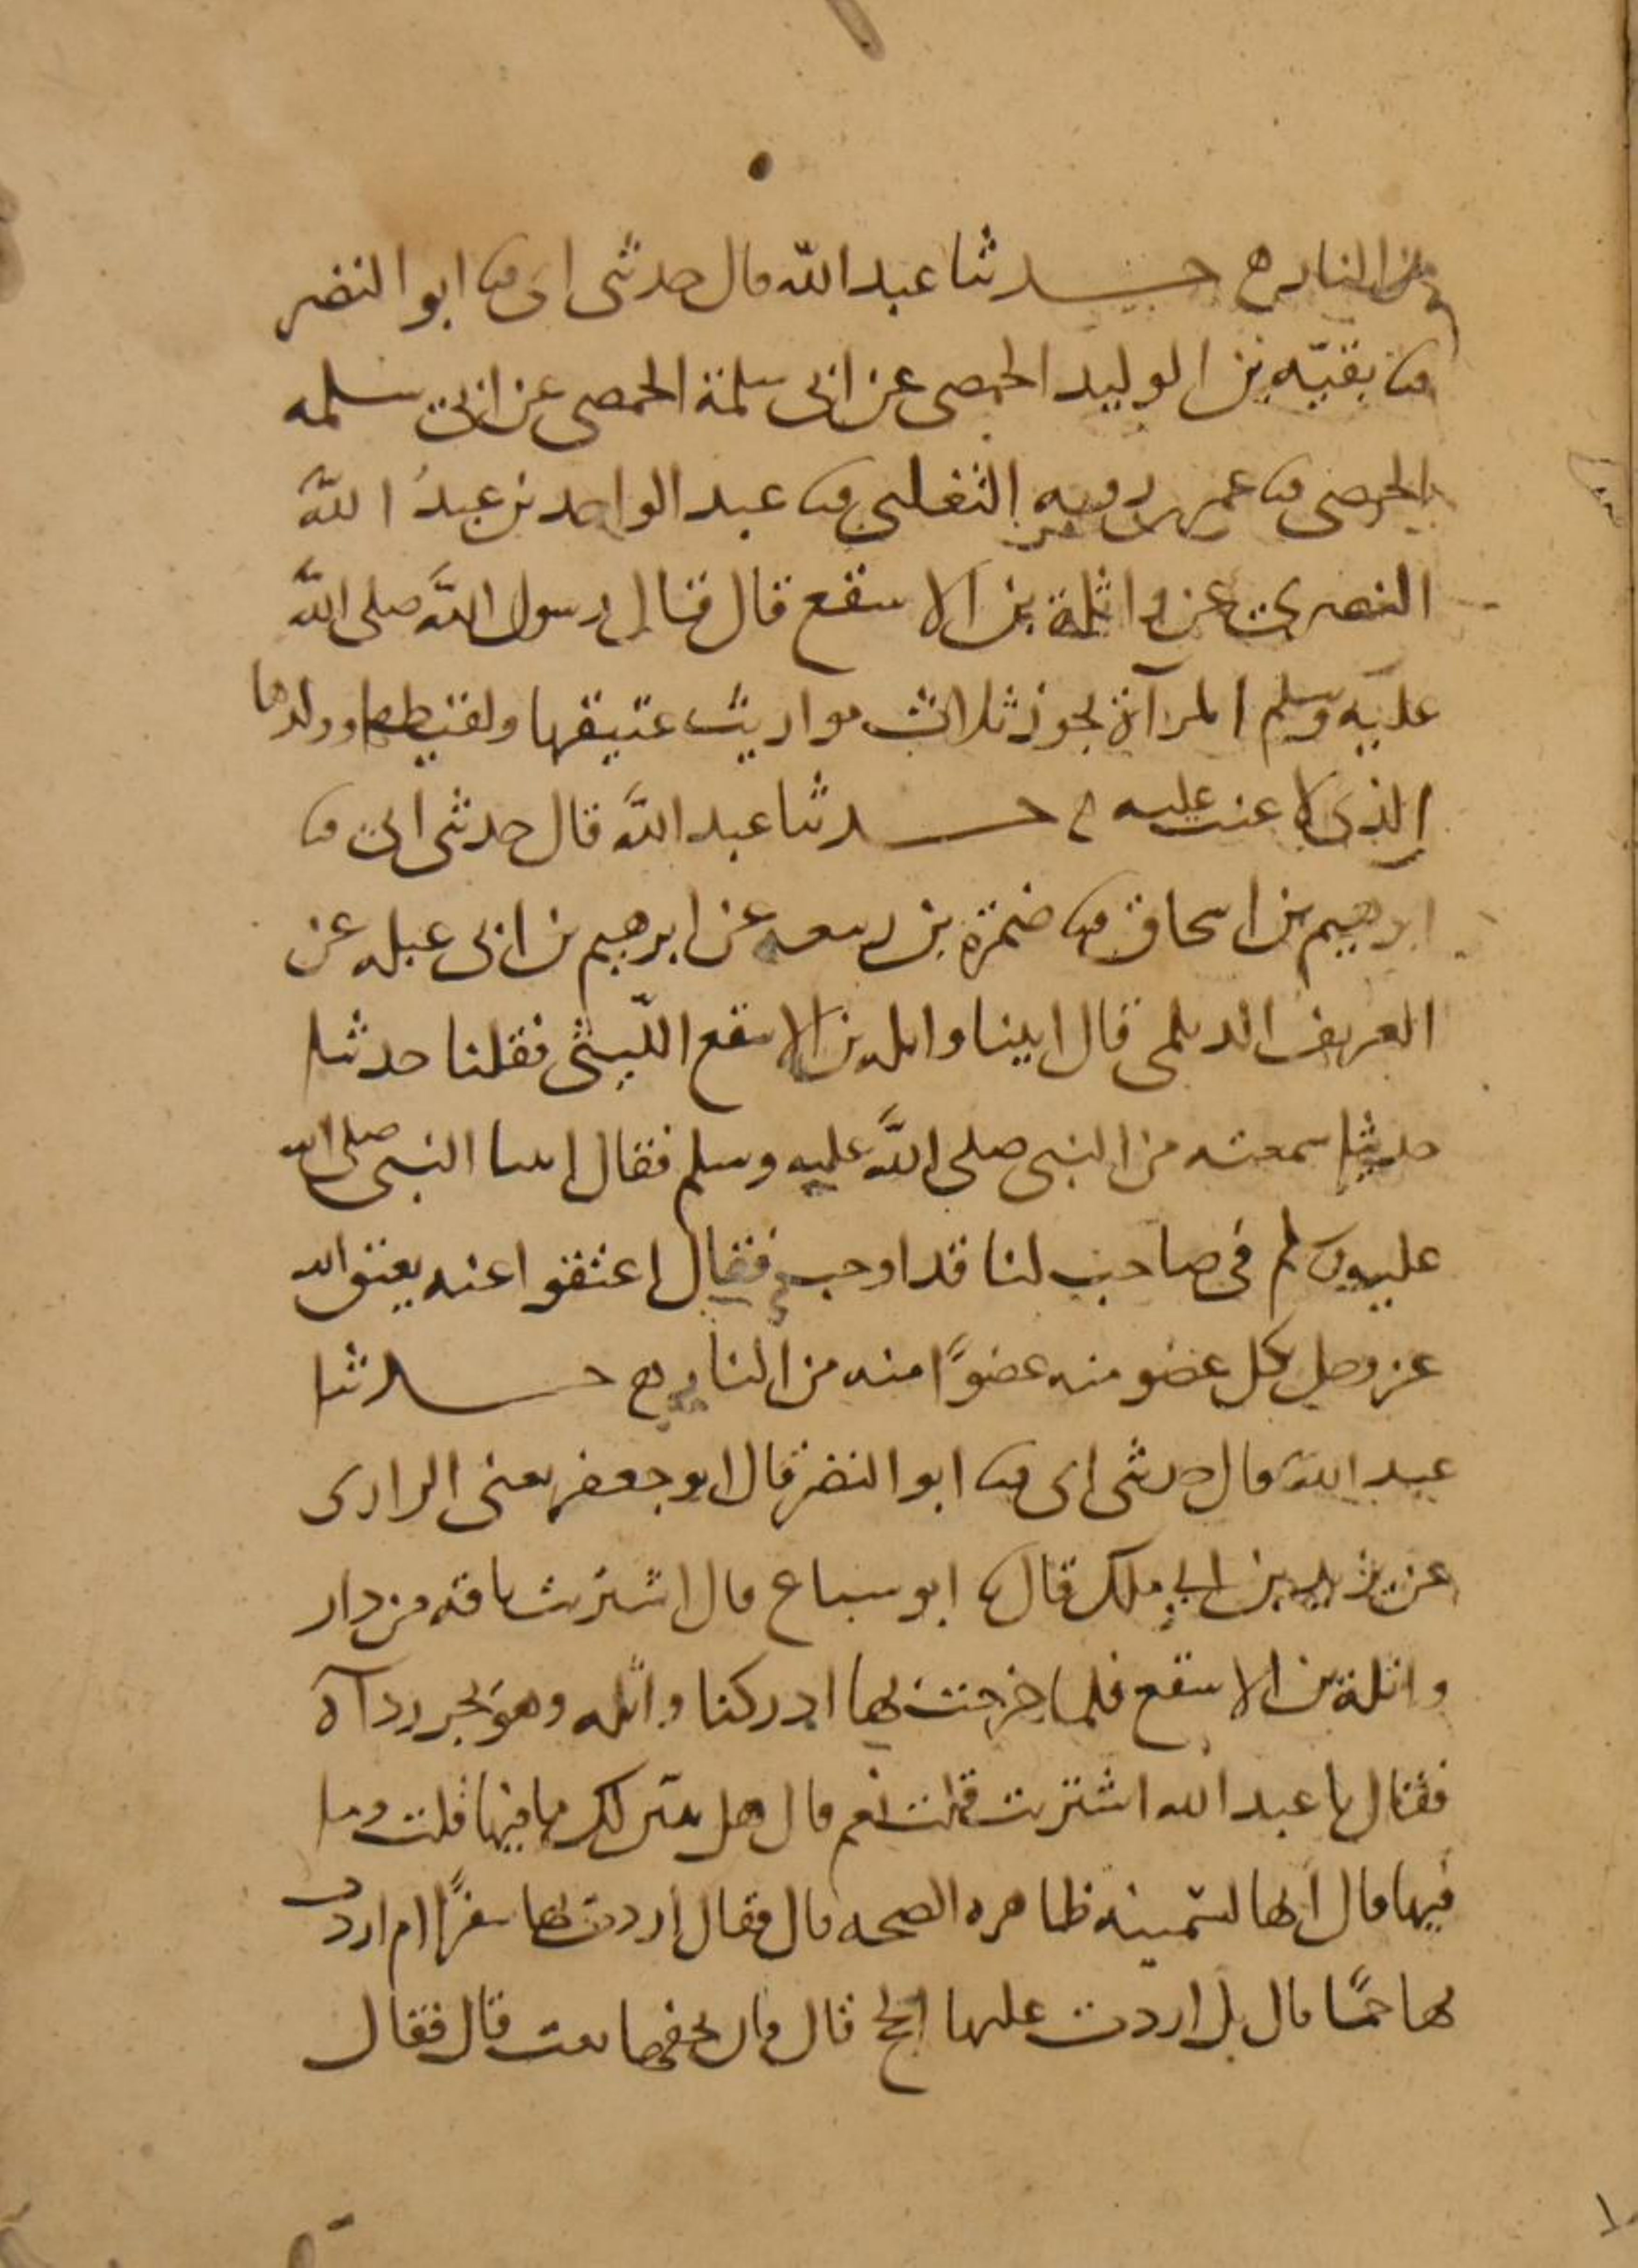 من النار ه حدثنا عبد الله قال حدثنى ابى ثنا ابو النضر
ثنا بقيّه بن الوليد الحمصى عن ابى سلمة الحمصى عن ابى سلمه
الحمصى ثنا عمر بن رويه التغلبى ثنا عبد الواحد بن عبد الله
النصرى عن واثلة بن الاسقع قال قال رسول الله صلى الله
عليه وسلم المرآة تحوز ثلاث مواريث عتيقها ولقيطها وولدها
الذى لاعنت عليه ه حدثنا عبد الله قال حدثنى ابى ثنا
ابرهيم بن اسحاق ثنا ضمرة بن ربيعه عن ابرهيم بن ابى عبله عن
العريف الديلمى قال اتينا واثله بن الاسقع الليثى فقلنا حدثنا
حديثا سمعته من النبى صلى الله عليه وسلم فقال اتينا النبى صلى الله
عليه وسلم فى صاحب لنا قد اوجب فقال اعتقوا عنه يعتق الله
عز وجل بكل عضو منه عضوًا منه من النار ه حدثنا
عبد الله قال حدثنى ابى ثنا ابو النضر قال ابو جعفر يعنى الرازى
عن يزيد بن ابي ملك قال ثنا ابو سباع قال اشتريت ناقه من دار
واثلة بن الاسقع فلما خرجت بها ادركنا واثله وهو يجر ردآه
فقال يا عبد الله اشتريت قلت نعم قال هل بين لك ما فيها قلت وما
فيها قال انها لسمينه ظاهره الصحه قال فقال اردت بها سفرًا ام اردت
بها لحمًا قال بل اردت عليها الحج قال فان بخفها نقب قال فقال